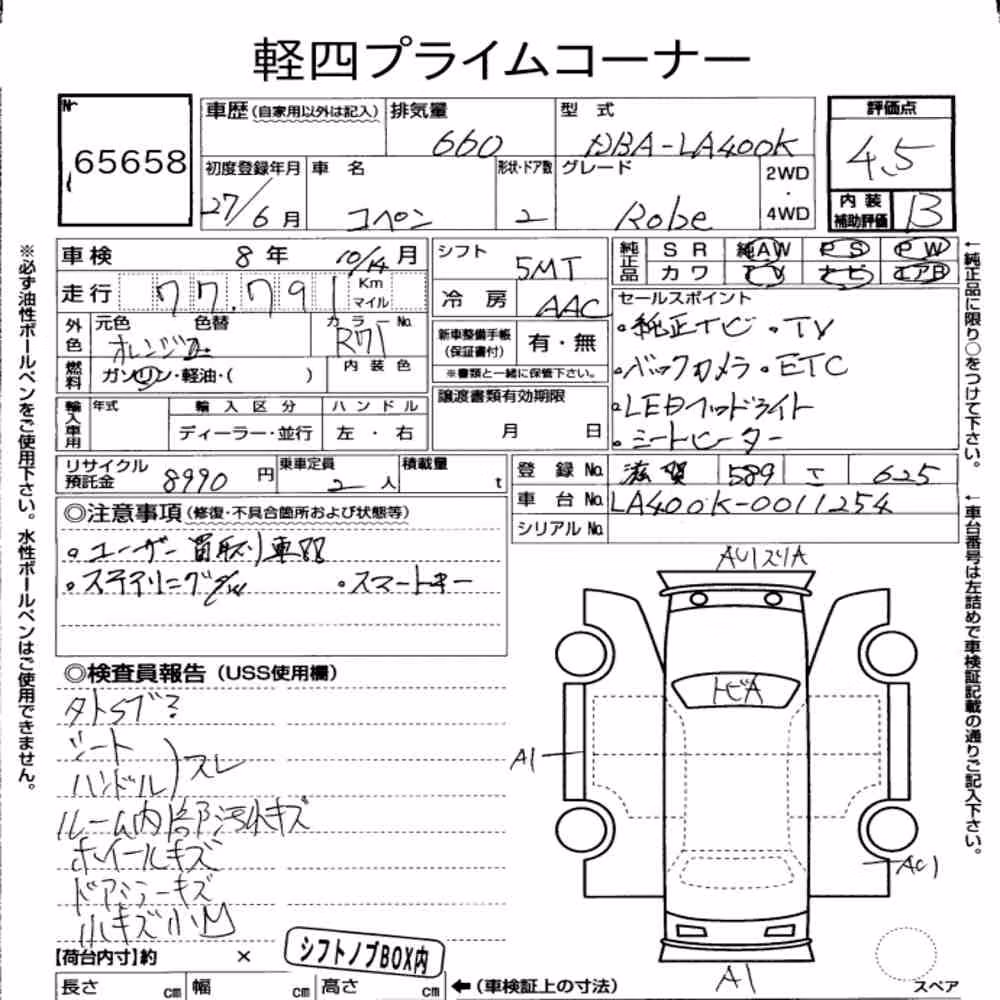 軽四プライムコーナー
№ 65658
車歴(自家用以外は記入) 排気量 660 型式 DBA-LA400K 評価点 4.5
初度登録年月 27/6月 車名 コペン 形状・ドア数 2 グレード Robe 2WD ・ 4WD 内装補助評価 B
車検 8年 10/14月 シフト 5MT 純正品 SR 純AW PS PW
カワ TV ナビ エアB
走行 77,791 Km マイル 冷房 AAC
セールスポイント
外色 元色 オレンジ 色替 カラーNo. R71
新車整備手帳(保証書付) 有・無
※書類と一緒に保管下さい。
・純正ナビ ・TV
・バックカメラ ・ETC
・LEDヘッドライト
・シートヒーター
燃料 ガソリン・軽油・( ) 内装色
譲渡書類有効期限 月 日
輸入車用 年式 輸入区分 ハンドル
ディーラー・並行 左・右
リサイクル預託金 8990円 乗車定員 2人 積載量 t
登録No. 滋賀 589 625
車台No. LA400K-0011254
シリアルNo.
◎注意事項(修復・不具合箇所および状態等)
・ユーザー買取り車
・ステアリング ・スマートキー
◎検査員報告(USS使用欄)
シート
ハンドル)スレ
ルーム内部汚れキズ
ホイールキズ
ドアミラーキズ
小キズ小凹
トビA
A1
AU1
A1
スペア
【荷台内寸】約 ×
シフトノブBOX内
長さ cm 幅 cm 高さ cm ←(車検証上の寸法)
※必ず油性ボールペンをご使用下さい。水性ボールペンはご使用できません。
←純正品に限り○をつけて下さい。
←車台番号は左詰めで車検証記載の通りご記入下さい。